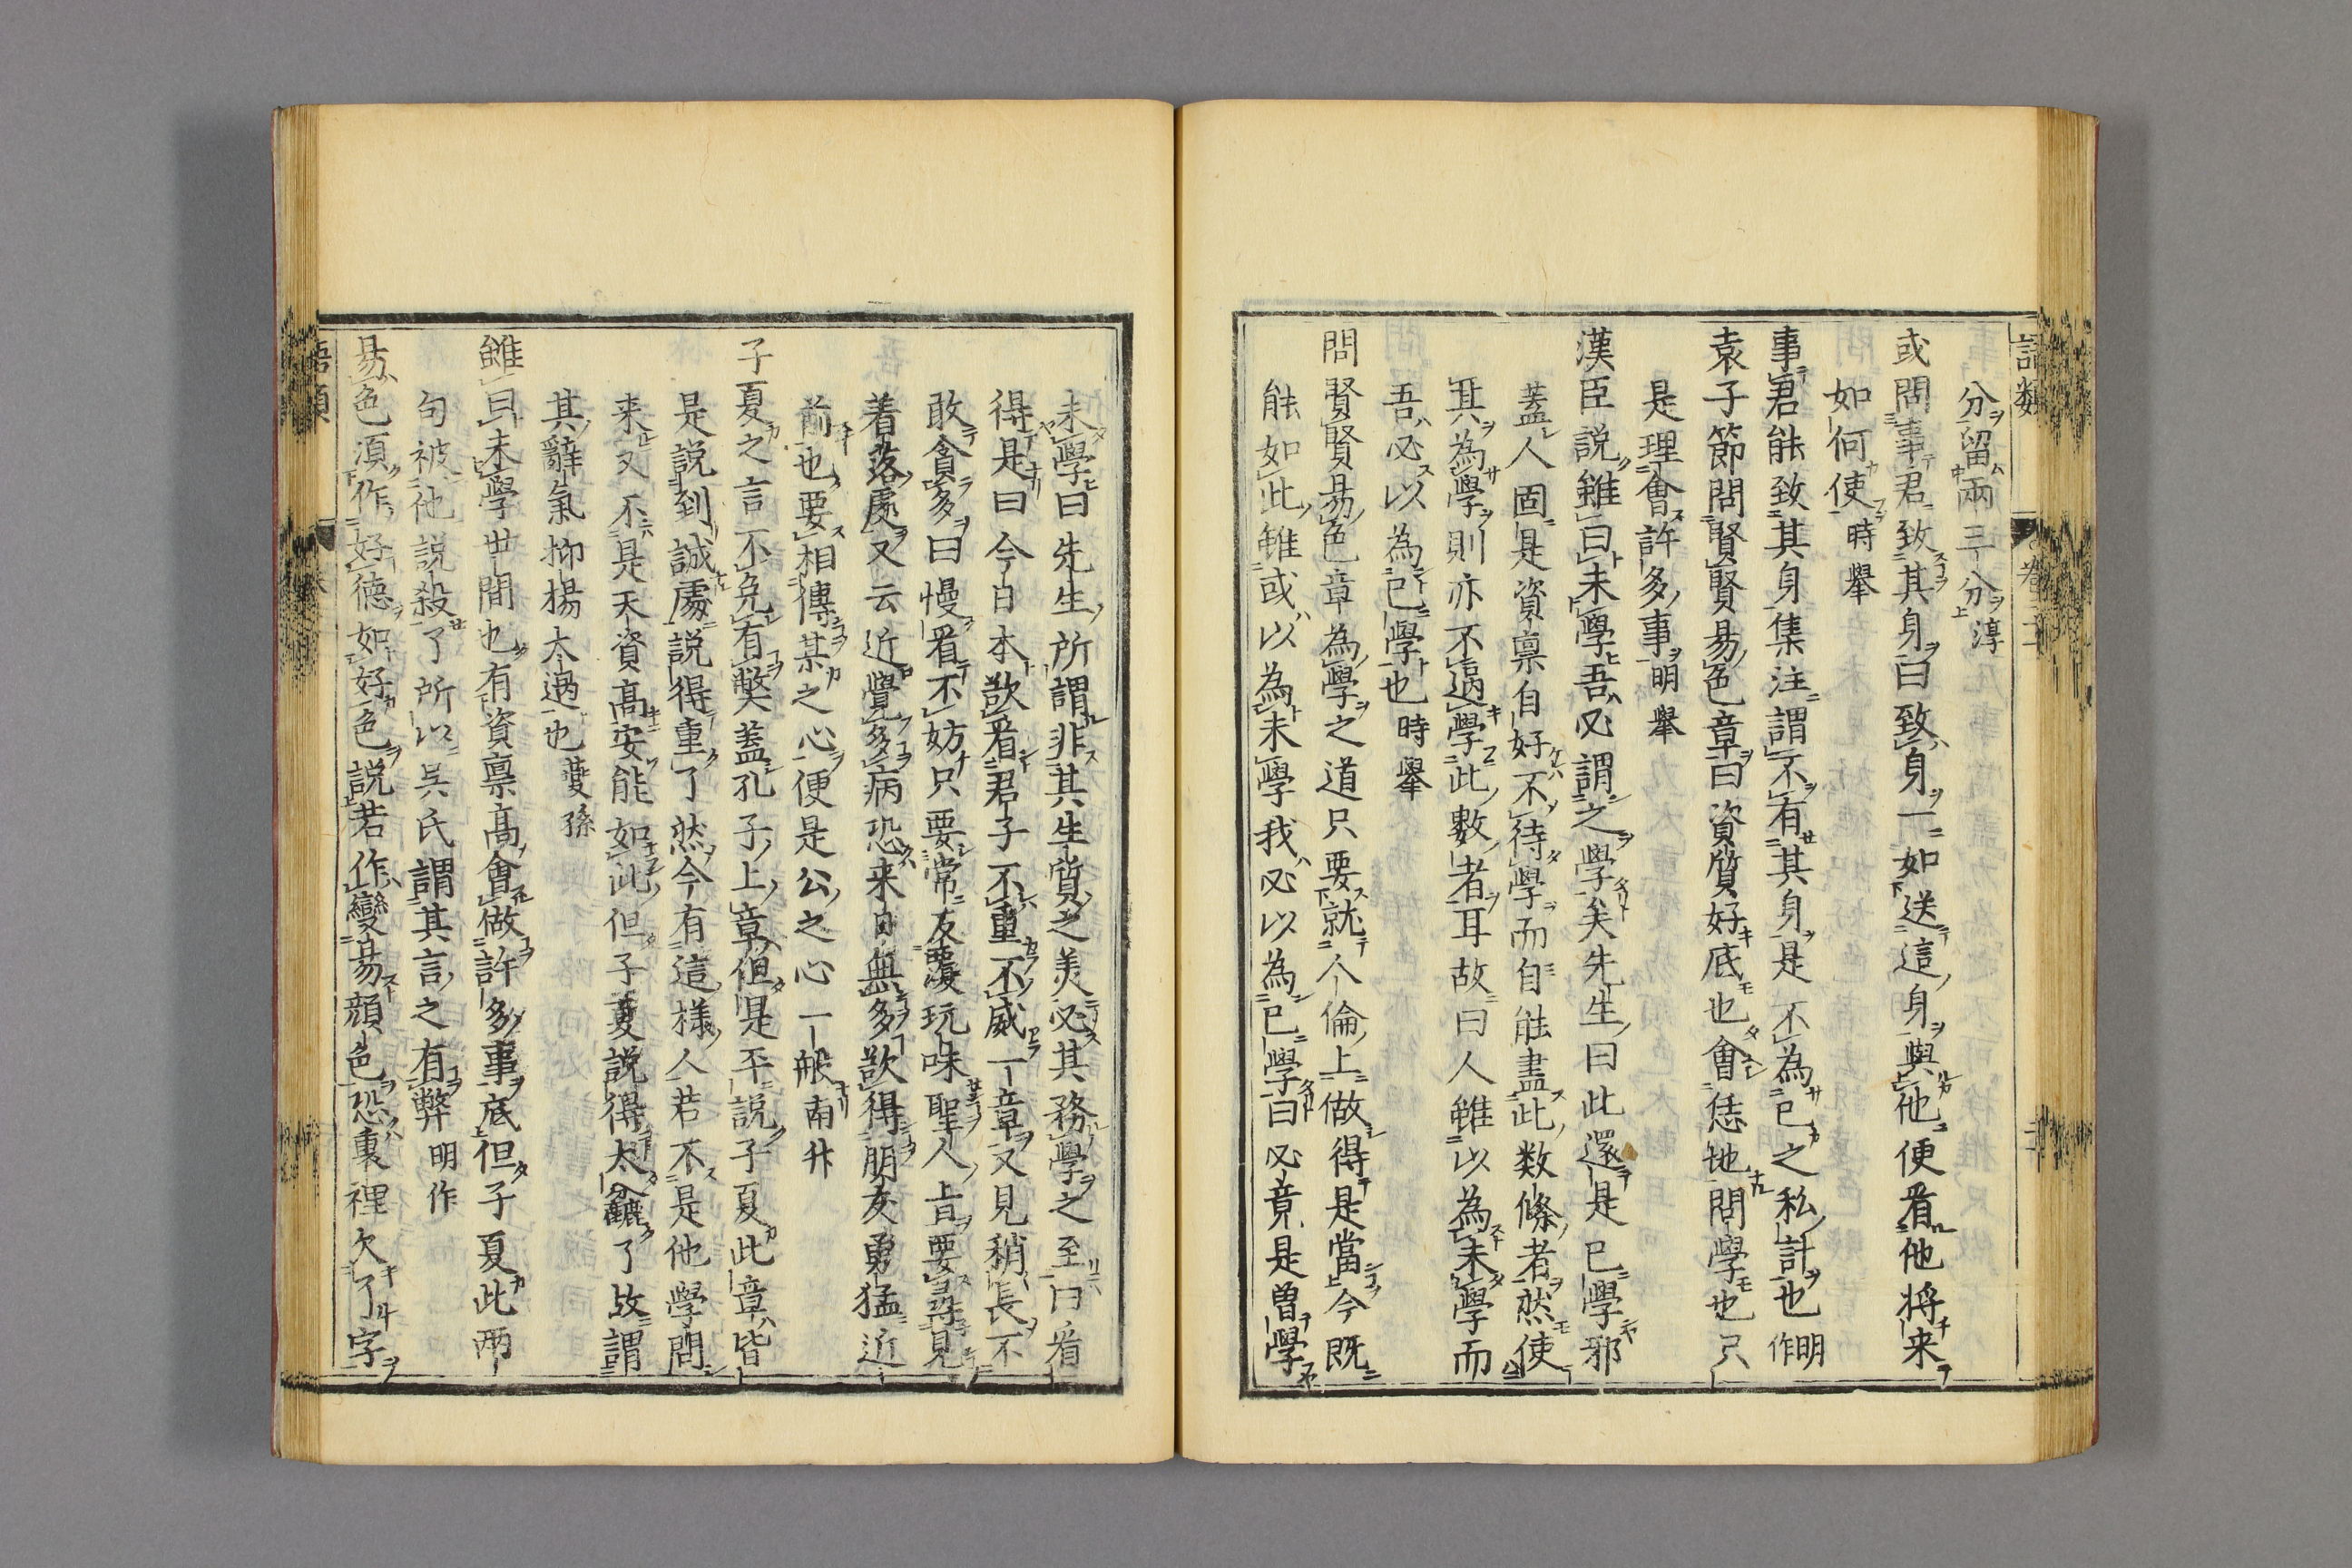 語類
卷二十一
分留兩三分淳
或問事君致其身曰致身一如送這身與他便看他將来
如何使時舉
事君能致其身集注謂不有其身是不為己之私計也明作
袁子節問賢賢易色章曰資質好底也會恁地問學也只
是理會許多事明舉
漢臣説雖曰未學吾必謂之學矣先生曰此還是已學邪
蓋人固是資禀自好不待學而自能盡此数條者然使
其為學則亦不過學此數者耳故曰人雖以為未學而
吾必以為已學也時舉
問賢賢易色章為學之道只要就人倫上做得是當今既
能如此雖或以為未學我必以為已學曰必竟是曽學
未學曰先生所謂非其生質之美必其務學之至曰看
得是曰今日本欲看君子不重不威一章又見稍長不
敢貪多曰慢看不妨只要常友覆玩味聖人旨要尋見
着落處又云近覺多病恐来日無多欲得朋友勇猛近
前也要相傳某之心便是公之心一般南升
子夏之言不免有獘蓋孔子上章但是平説子夏此章皆
是説到誠處説得重了然今有這様人若不是他學問
来又不是天資髙安能如此但子夏説得太麤了故謂
其辭氣抑揚太過也夔孫
雖曰未學世間也有資禀髙會做許多事底但子夏此两
句被他説殺了所以呉氏謂其言之有弊明作
易色湏作好德如好色説若作變易顔色恐裏裡欠了字
語類